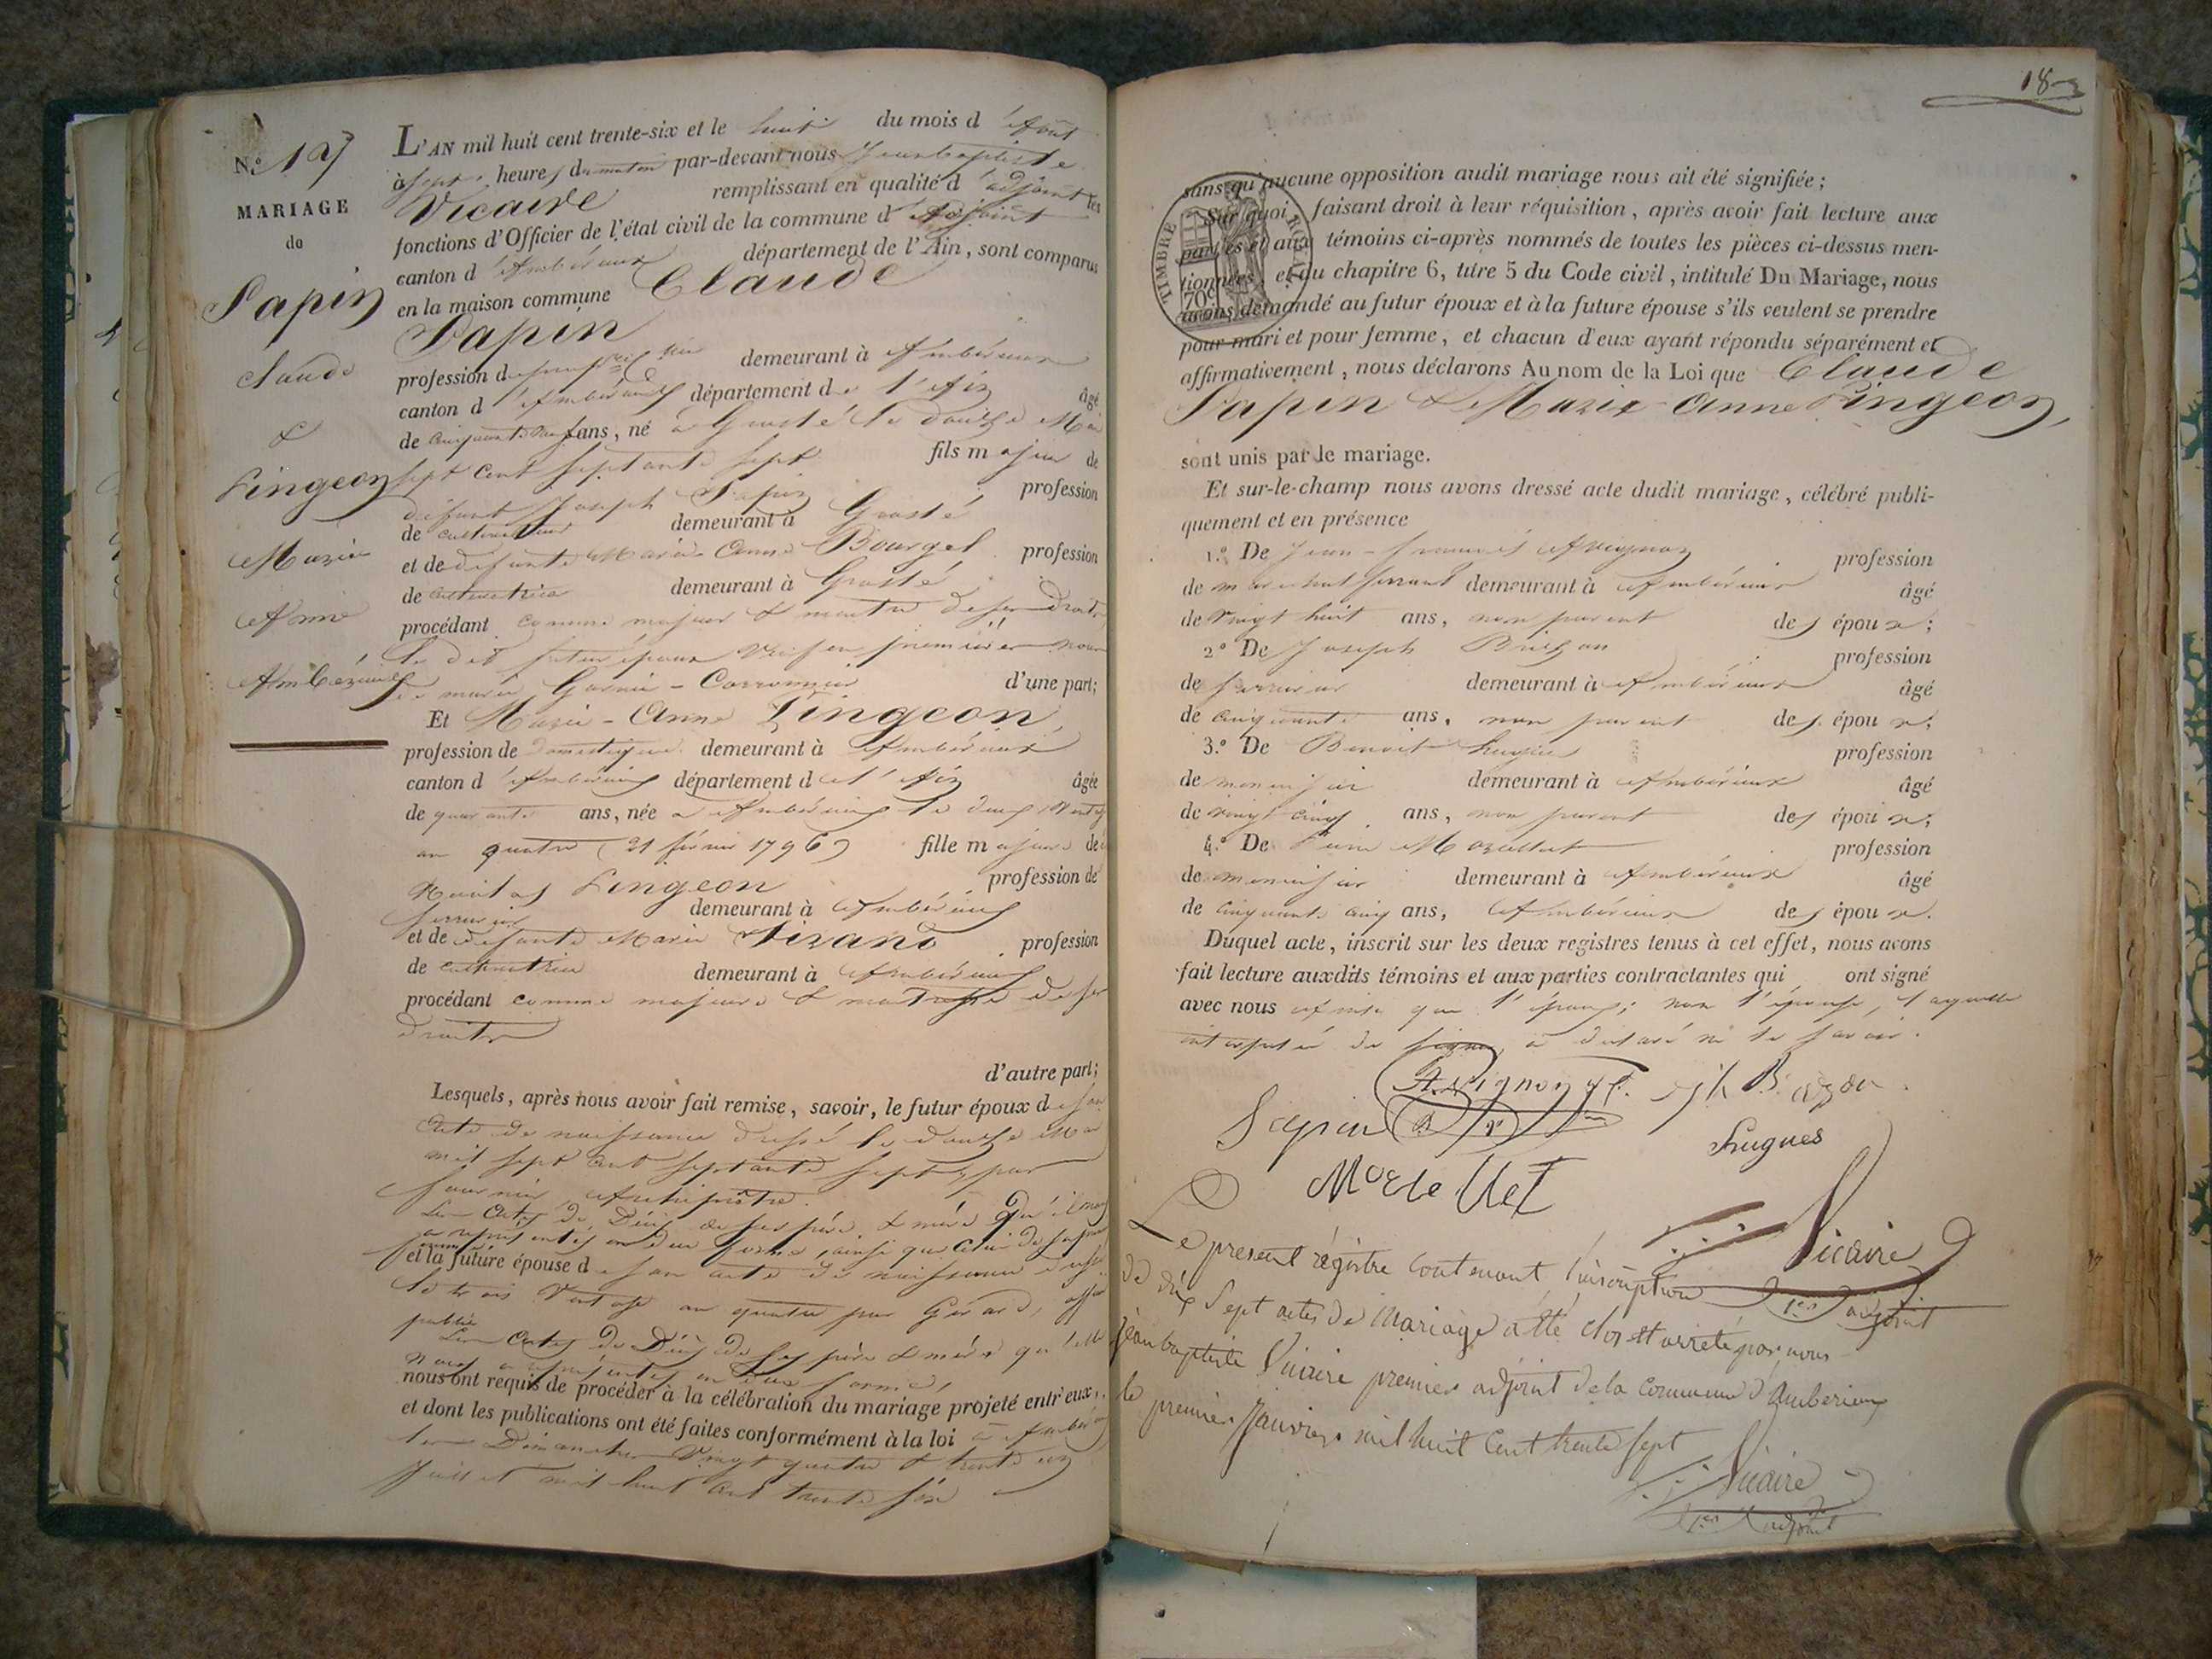 N.º 17
MARIAGE
de
Sapin
Claude
&
Pingeon
Marie
Anne
Ambérieux
L'AN mil huit cent trente-six et le huit du mois d'Août
à sept heures du matin par-devant nous Jean baptiste
Vicaire remplissant en qualité d'adjoint les
fonctions d'Officier de l'état civil de la commune d'
canton d'Ambérieux département de l'Ain, sont comparus
en la maison commune Claude
Sapin
profession de demeurant à Ambérieux
canton d'Ambérieux département de l'Ain âgé
de cinquante neuf ans, né à le douze Mai
sept cent septante sept fils majeur de
défunt Joseph Sapin profession
de cultivateur demeurant à
et de défunte Marie Anne Bourgel profession
de cultivatrice demeurant à
procédant comme majeur & maitre de ses droits
le dit futur époux veuf en premières noces
de marie d'une part;
Et Marie-Anne Pingeon,
profession de Domestique demeurant à Ambérieux
canton d'Ambérieux département de l'Ain âgée
de quarante ans, née à Ambérieux le deux Ventose
an quatre (21 février 1796) fille majeure de
Pingeon profession de
serrurier demeurant à Ambérieux
et de défunte Marie Tirand profession
de cultivatrice demeurant à Ambérieux
procédant comme majeure & maitresse de ses
droits
d'autre part;
Lesquels, après nous avoir fait remise, savoir, le futur époux de son
acte de naissance dressé le douze Mai
mil sept cent septante sept, par
Archiprêtre.
Les actes de Décès de ses père & mère qu'il nous
a représentés en due forme, ainsi que celui de sa
et la future épouse de son acte de naissance dressé
le trois Ventose an quatre par Gérard, officier
public
Les actes de Décès de ses père & mère qu'elle
nous a représentés en due forme,
nous ont requis de procéder à la célébration du mariage projeté entr'eux,
et dont les publications ont été faites conformément à la loi à Ambérieux
les Dimanches vingt quatre & trente un
Juillet mil huit cent trente six
18
TIMBRE ROYAL
70c
sans qu'aucune opposition audit mariage nous ait été signifiée;
Sur quoi, faisant droit à leur réquisition, après avoir fait lecture aux
parties et aux témoins ci-après nommés de toutes les pièces ci-dessus men-
tionnées, et du chapitre 6, titre 5 du Code civil, intitulé Du Mariage, nous
avons demandé au futur époux et à la future épouse s'ils veulent se prendre
pour mari et pour femme, et chacun d'eux ayant répondu séparément et
affirmativement, nous déclarons Au nom de la Loi que Claude
Sapin & Marie-Anne Pingeon,
sont unis par le mariage.
Et sur-le-champ nous avons dressé acte dudit mariage, célébré publi-
quement et en présence
1.º De Jean-François Avignon profession
de marechal ferrant demeurant à Ambérieux âgé
de vingt huit ans, non parent des époux;
2º De Joseph profession
de serrurier demeurant à Ambérieux âgé
de cinquante ans, non parent des époux;
3.º De Benoit Hugues profession
de menuisier demeurant à Ambérieux âgé
de vingt cinq ans, non parent des époux;
4.º De Morellet profession
de menuisier demeurant à Ambérieux âgé
de cinquante cinq ans, Ambérieux des époux.
Duquel acte, inscrit sur les deux registres tenus à cet effet, nous avons
fait lecture auxdits témoins et aux parties contractantes qui ont signé
avec nous ainsi que l'époux; non l'épouse, laquelle
interpelée de signer a déclaré ne le savoir.
Avignon jf.
Sapin
Hugues
Morellet
Vicaire
1er adjoint
Le present régistre contenant l'inscription
de dix Sept actes de Mariage a été clos et arreté par nous
jean baptiste Vicaire premier adjoint de la commune d'Amberieux
le premier Janvier mil huit Cent trente sept
Vicaire
1er adjoint